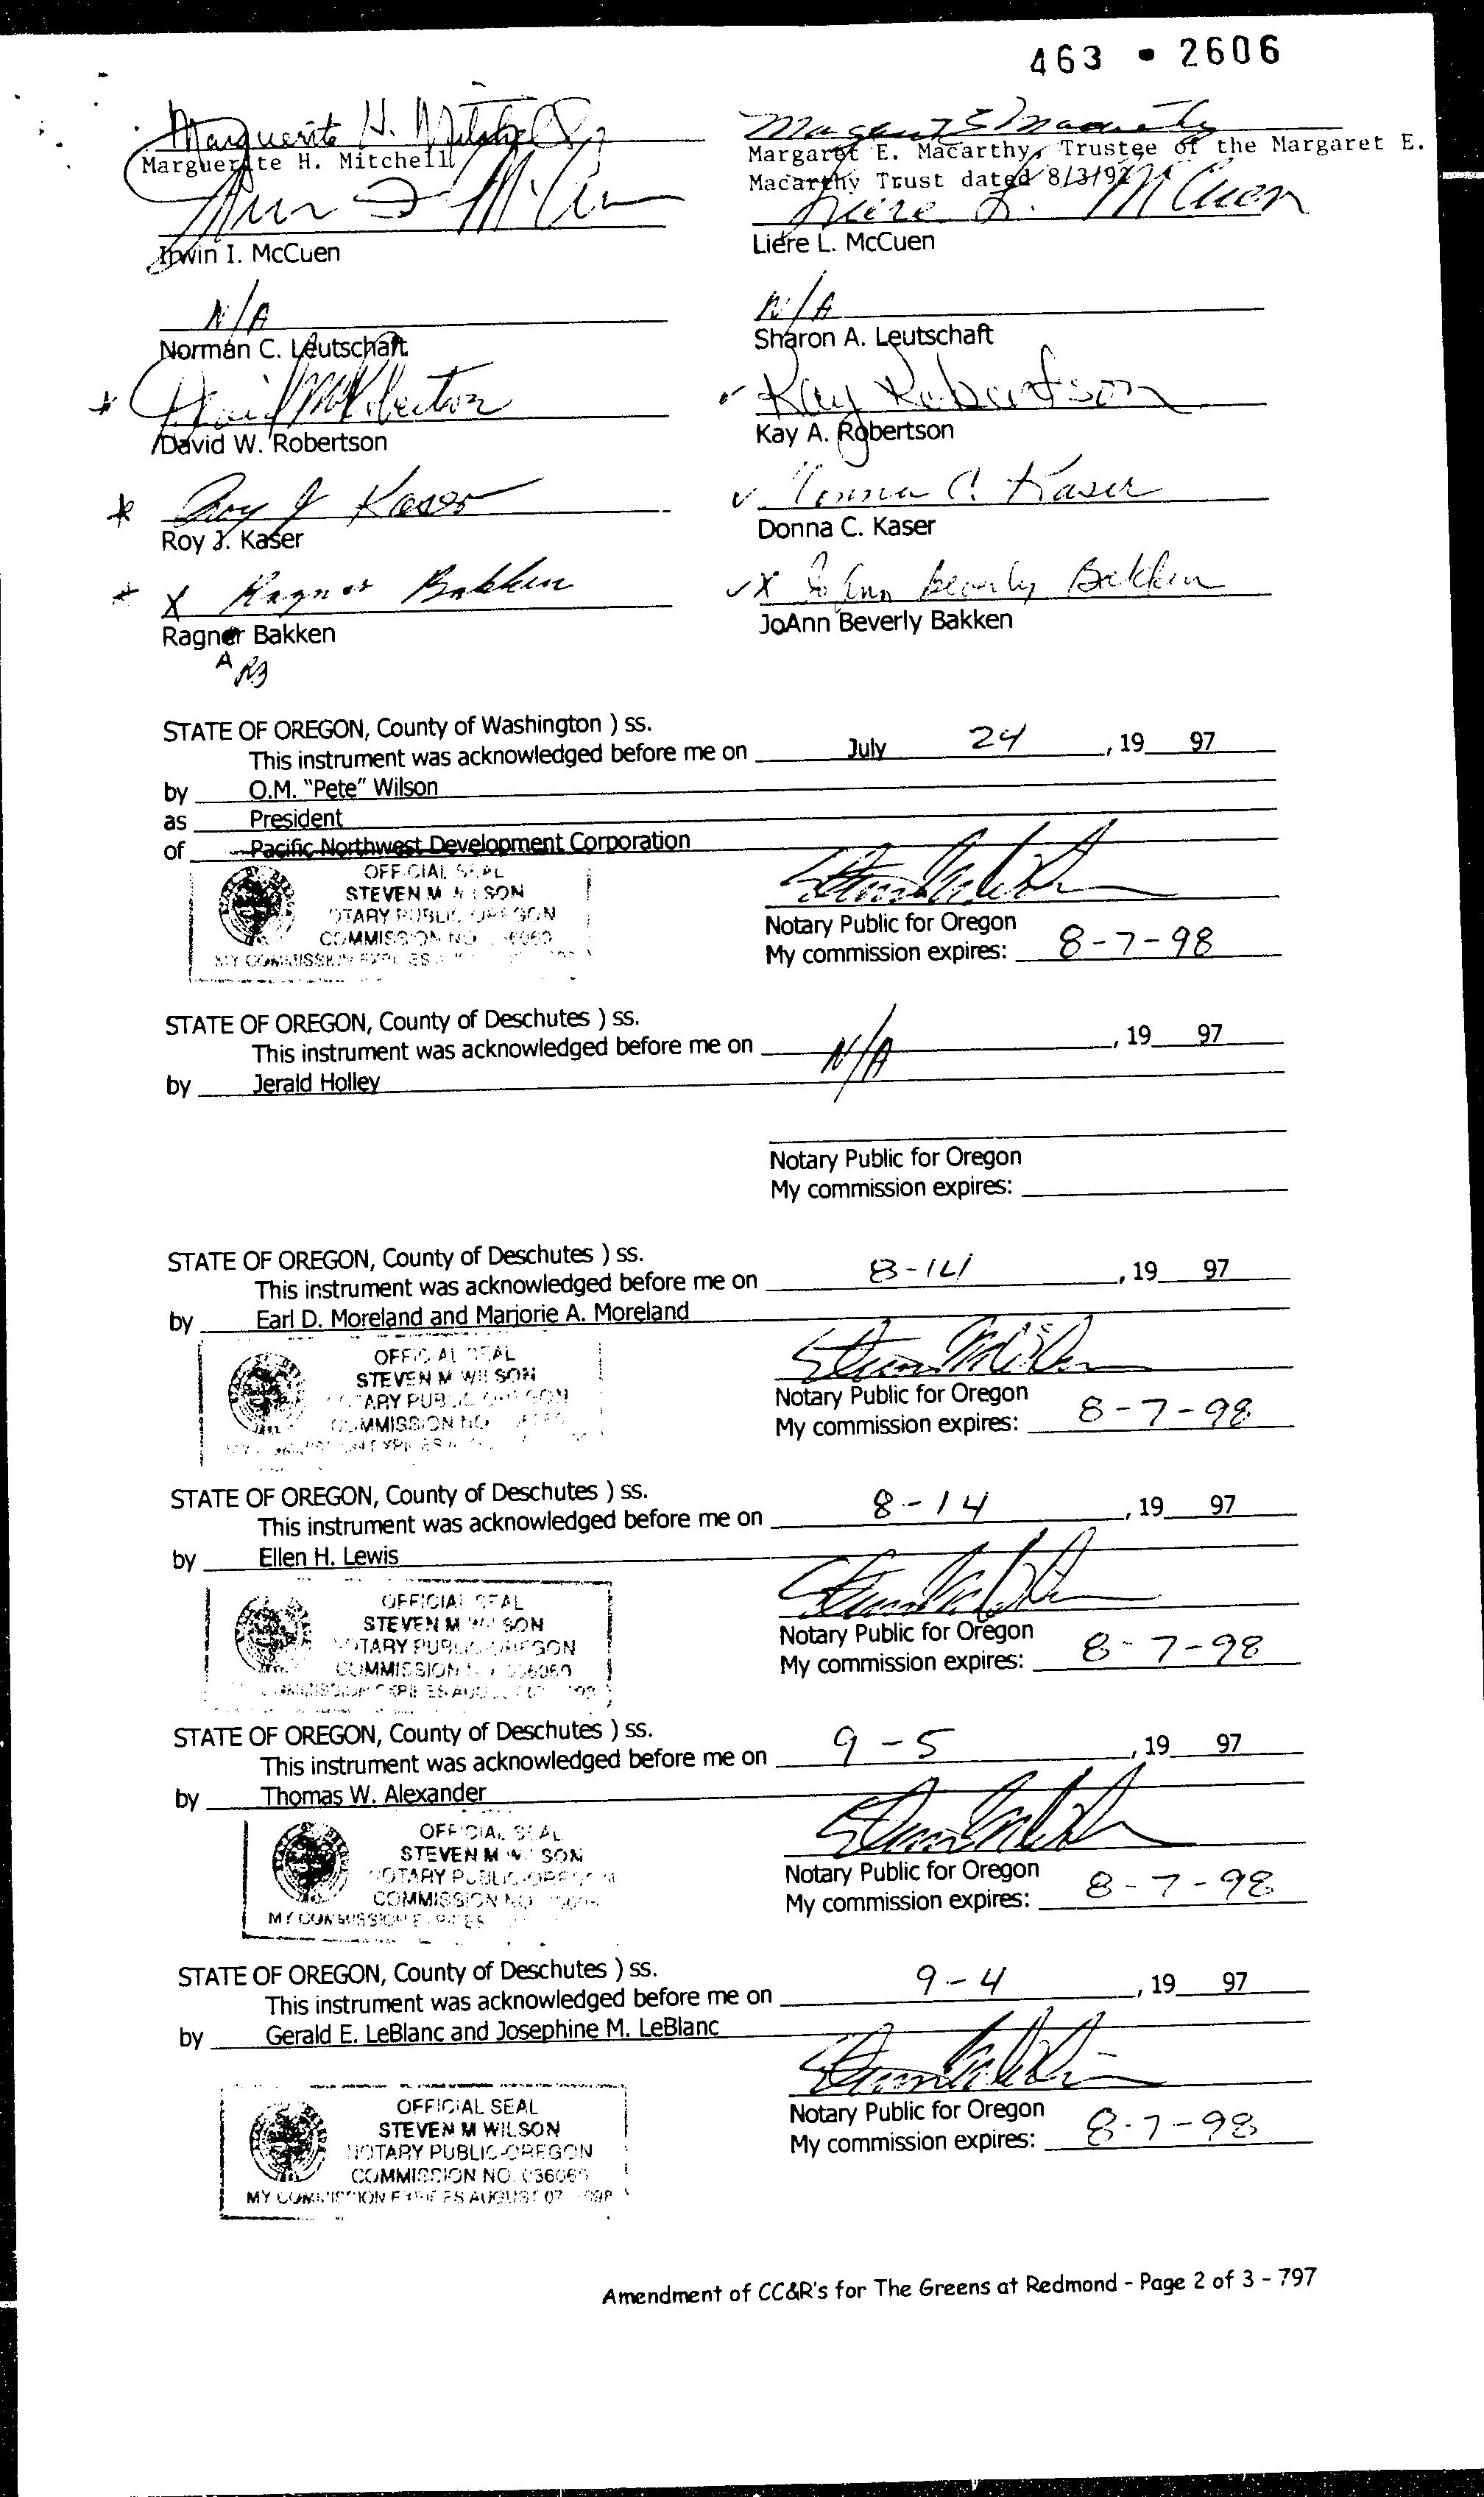 463 - 2606
Marguerite H. Mitchell
Marguerite H. Mitchell
Margaret E. Macarthy, Trustee of the Margaret E.
Macarthy Trust dated 8/3/92
Irwin I. McCuen
Liere L. McCuen
Liere L. McCuen
N/A
N/A
Norman C. Leutschaft
Sharon A. Leutschaft
Kay Robertson
David W. Robertson
Kay A. Robertson
Roy J Kaser
Donna C. Kaser
Roy J. Kaser
Donna C. Kaser
X Ragnar Bakken
X JoAnn Beverly Bakken
Ragner Bakken
JoAnn Beverly Bakken
A RB
STATE OF OREGON, County of Washington ) ss.
This instrument was acknowledged before me on July 24, 19 97
by O.M. "Pete" Wilson
as President
of Pacific Northwest Development Corporation
OFFICIAL SEAL
STEVEN M WILSON
NOTARY PUBLIC-OREGON
COMMISSION NO.
MY COMMISSION EXPIRES
Notary Public for Oregon
My commission expires: 8-7-98
STATE OF OREGON, County of Deschutes ) ss.
This instrument was acknowledged before me on N/A, 19 97
by Jerald Holley
Notary Public for Oregon
My commission expires:
STATE OF OREGON, County of Deschutes ) ss.
This instrument was acknowledged before me on 8-14, 19 97
by Earl D. Moreland and Marjorie A. Moreland
OFFICIAL SEAL
STEVEN M WILSON
NOTARY PUBLIC-OREGON
COMMISSION NO.
Notary Public for Oregon
My commission expires: 8-7-98
STATE OF OREGON, County of Deschutes ) ss.
This instrument was acknowledged before me on 8-14, 19 97
by Ellen H. Lewis
OFFICIAL SEAL
STEVEN M WILSON
NOTARY PUBLIC-OREGON
COMMISSION NO. 036060
Notary Public for Oregon
My commission expires: 8-7-98
STATE OF OREGON, County of Deschutes ) ss.
This instrument was acknowledged before me on 9-5, 19 97
by Thomas W. Alexander
OFFICIAL SEAL
STEVEN M WILSON
NOTARY PUBLIC-OREGON
COMMISSION NO.
MY COMMISSION EXPIRES
Notary Public for Oregon
My commission expires: 8-7-98
STATE OF OREGON, County of Deschutes ) ss.
This instrument was acknowledged before me on 9-4, 19 97
by Gerald E. LeBlanc and Josephine M. LeBlanc
OFFICIAL SEAL
STEVEN M WILSON
NOTARY PUBLIC-OREGON
COMMISSION NO. 036060
MY COMMISSION EXPIRES AUGUST 07, 1998
Notary Public for Oregon
My commission expires: 8-7-98
Amendment of CC&R's for The Greens at Redmond - Page 2 of 3 - 797